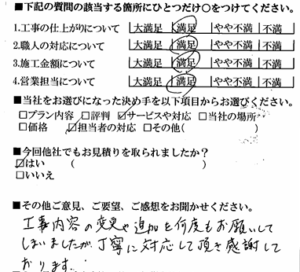 ■下記の質問の該当する箇所にひとつだけ○をつけてください。
1.工事の仕上がりについて 大満足 満足 やや不満 不満
2.職人の対応について 大満足 満足 やや不満 不満
3.施工金額について 大満足 満足 やや不満 不満
4.営業担当について 大満足 満足 やや不満 不満
■当社をお選びになった決め手を以下項目からお選びください。
□プラン内容 □評判 ☑サービスや対応 □当社の場所
□価格 ☑担当者の対応 □その他( )
■今回他社でもお見積りを取られましたか？
☑はい ( )
□いいえ
■その他ご意見、ご要望、ご感想をお聞かせください。
工事内容の変更や追加を何度もお願いして
しまいましたが、丁寧に対応して頂き感謝して
おります。